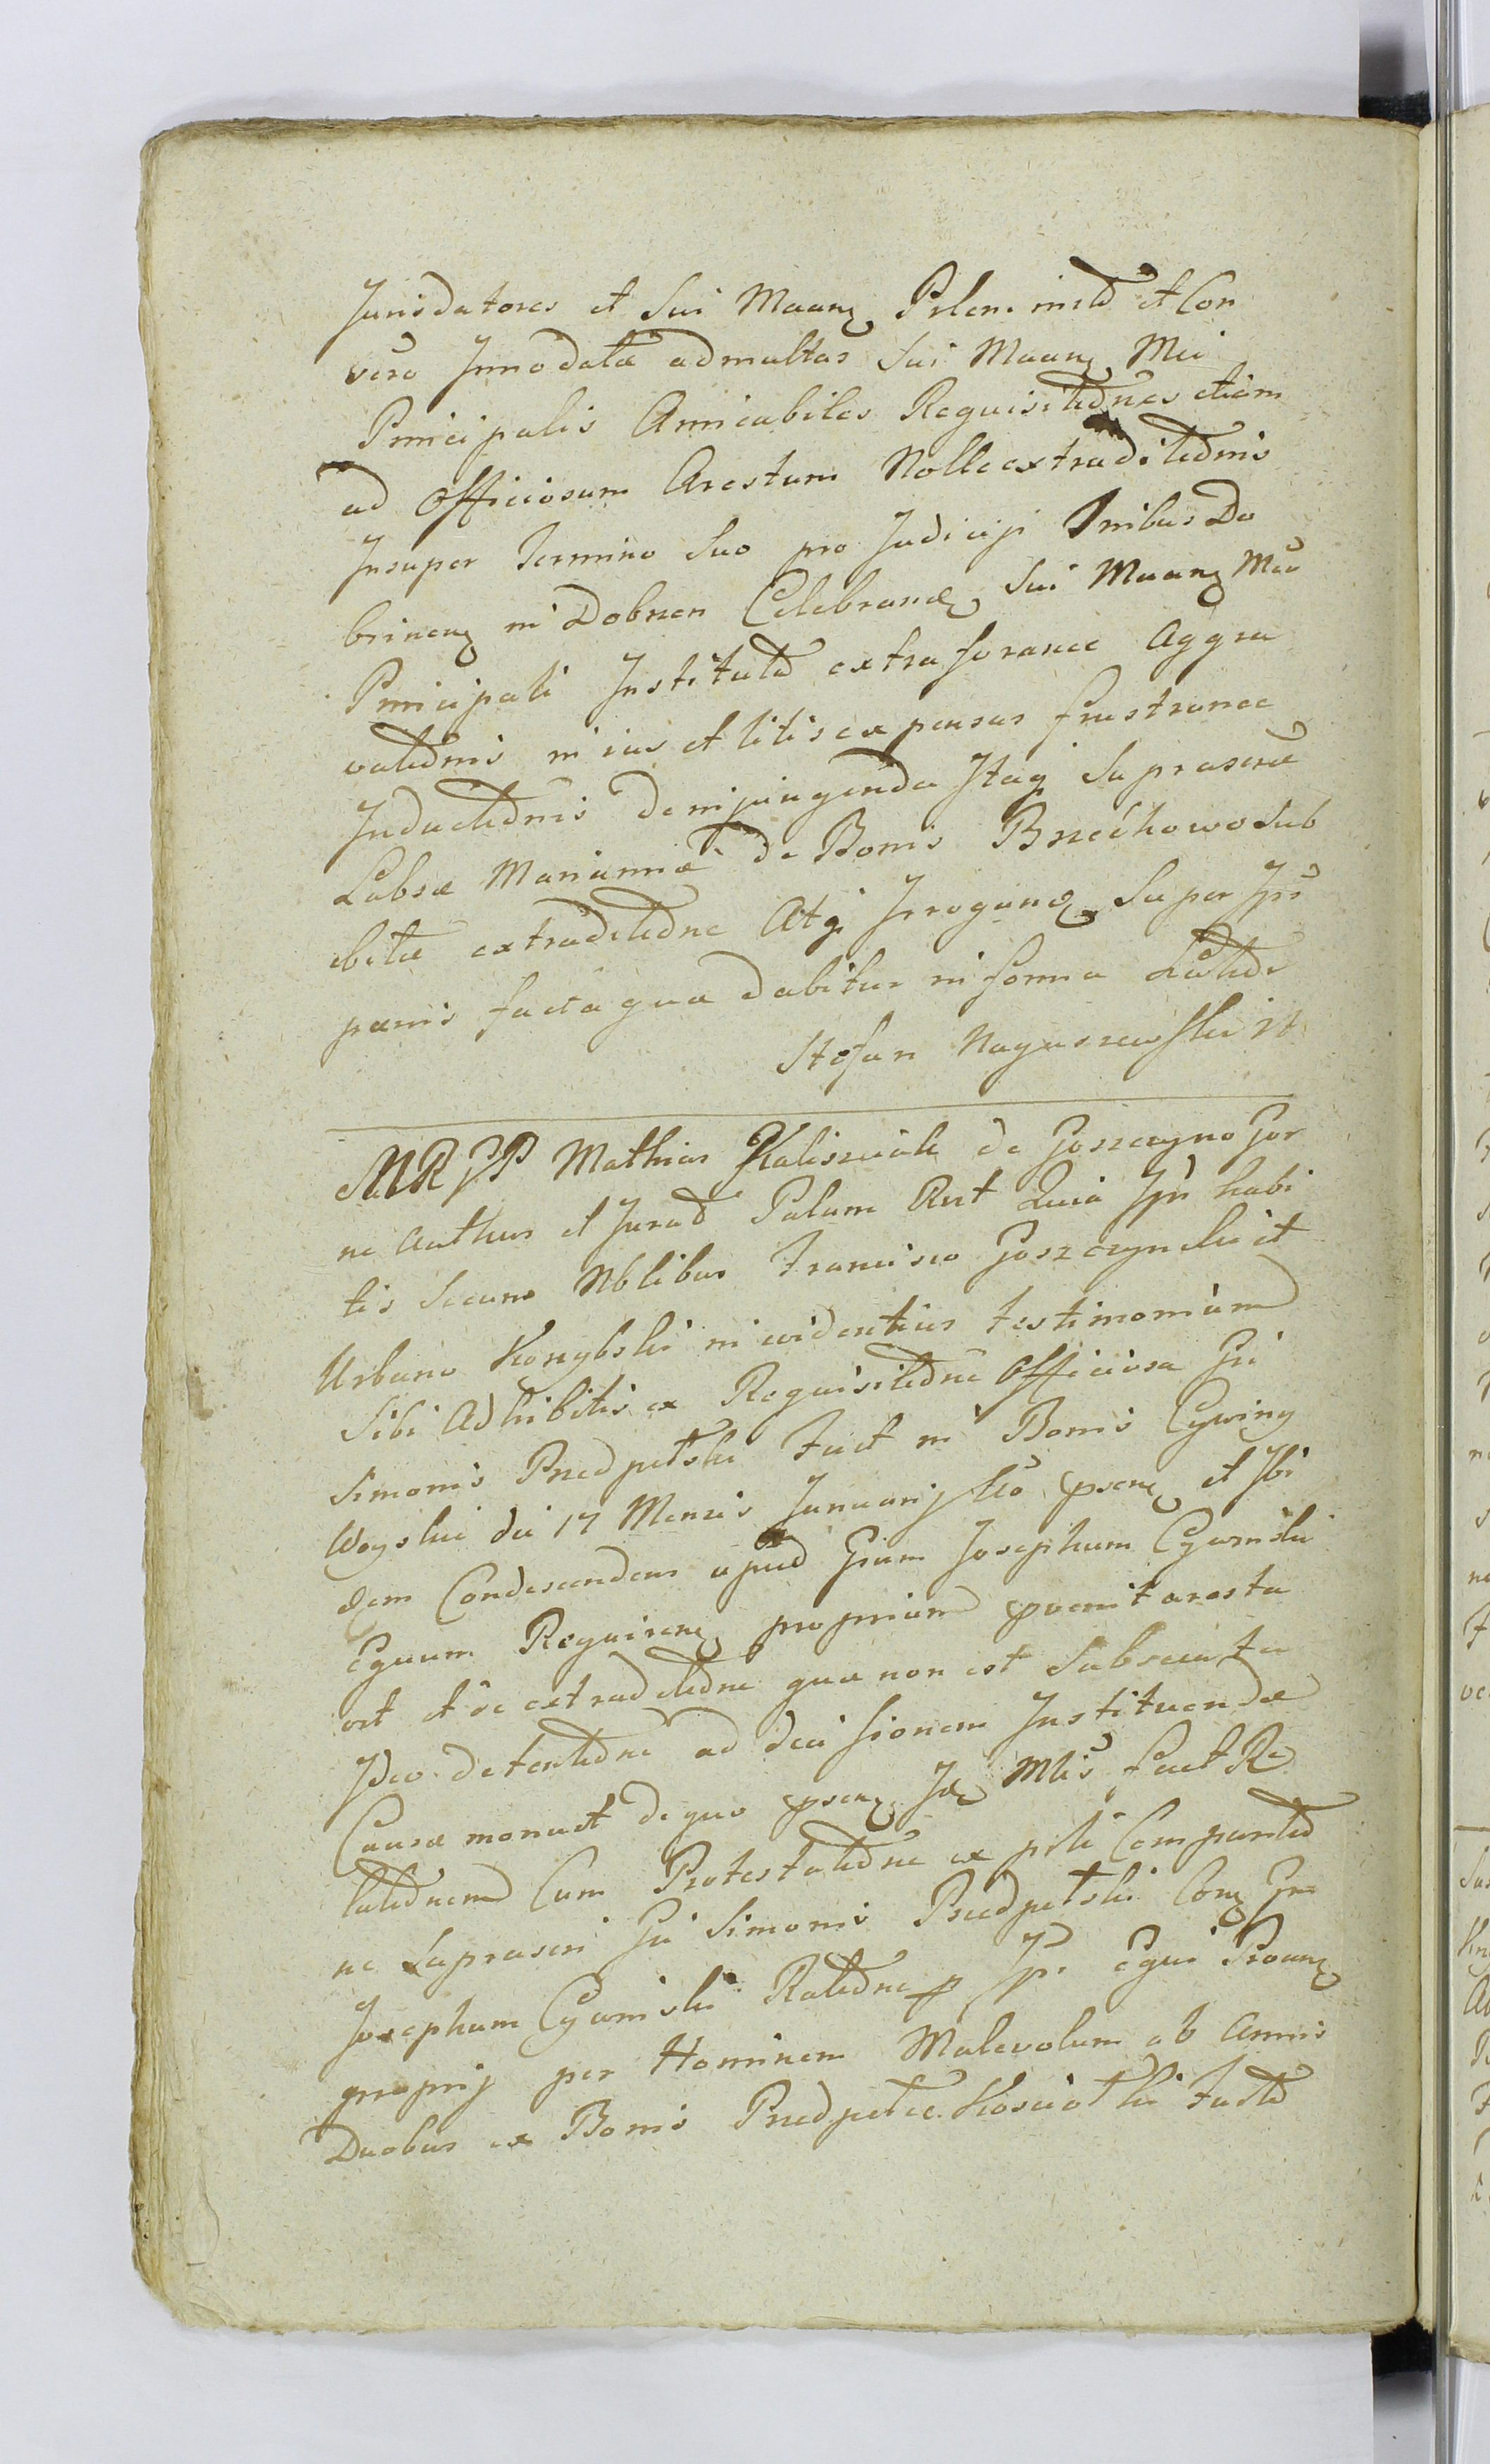 Jurisdatores et Sui Maanz Pslem insld et Con
vero Innodatæ admultas Sui Maanz Mei
Principalis Amicabiles Requisitednes etiam
ad Officiosum Arestum Nolle extraditednis
Insuper Termino Suo pro Judicijs Dnibus Do
brinenz in Dobnen Celebranz Sui Maanz Mei
Principali Institutd extraforanee Aggra
vatednis in ius et litis expensas frustranee
Inductednis de injungenda Itaq Suprascræ
Labsæ Mariannæ de Bonis Brzechowo Sub
ebitæ extraditedne Atq Irroganz Super Jpsi
pænis facta qua dabitur in forma Latidr
Stefan Nagurzewski it
MRJP Mathias Kaliszciak de Goszczyno Gor
ne Authus et Jurad Palam Rect Quia Jpse habi
tis Secum Nblibus Francisco Goszczynski et
Urbano Konybski in evidentius testimonium
Sibi Adhibitis ex Requisitedne Officiosa Gi
Simonis Przedpetski Fuit in Bonis Cywiny
Woyskie die 17 Mensis Januarij Ao psenz et Ibi
dem Condescendens apud Gsum Josephum Cywinski
Equum Requirenz proprium pvenit aresta
vit et de extraditedne quæ non est Subsecuta
Ideo detentedne ad decissionem Instituendæ
Causæ monuit de quo psenz Jæ Mtis facit Re
latednem Cum Protestatedne ex psli Comparited
ne Suprascri Gi Simonis Przedpetski Conz Gm
Josephum Cywinski Ratedne p Jpsi Equi Proanz
proprij per Hominem Malevolum ab Annis
Duobus ex Bonis Przedpelce Kosciotki Furtd